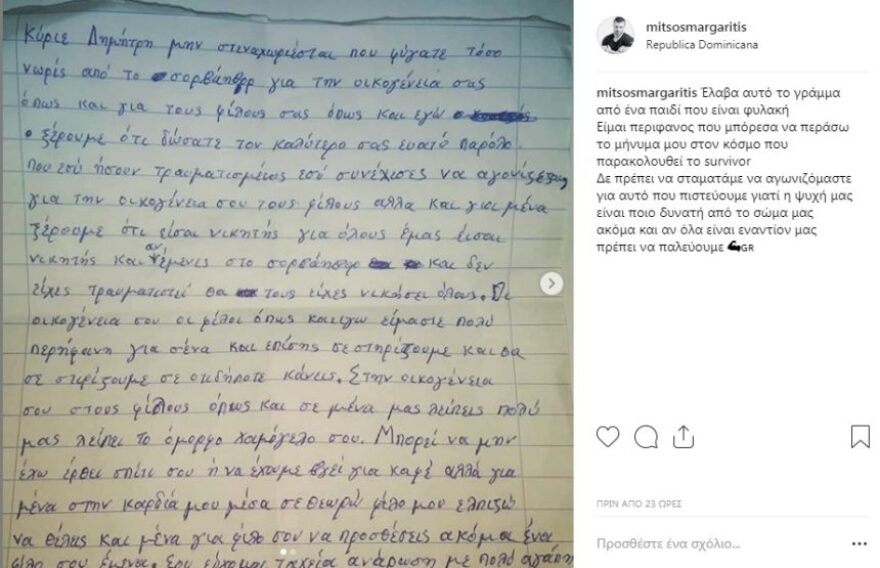 Κύριε Δημήτρη μην στεναχωριέσται που φύγατε τόσο
νωρίς από το σορβάηβορ για την οικογένειά σας
όπως και για τους φίλους σας όπως και εγώ
ξέρουμε ότι δώσατε τον καλύτερο σας ευατό παρόλο
που εσύ ήσουν τραυματισμένος εσύ συνέχισες να
για την οικογένεια σου τους φίλους αλλα και για μένα
ξέρουμε ότι είσαι νικητής για όλους έμας είσαι
νικητής και αν έμενες στο και δεν
είχες τραυματιστεί θα τους είχες νικήσει όλους. Οι
οικογένεια σου οι φίλοι όπως και εγω είμαστε πολύ
περήφανη για σένα και επίσης σε στηρίζουμε και θα
σε στιρίζουμε σε οτιδήποτε κάνεις. Στην οικογένεια
σου στους φίλους όπως και σε μένα μας λείπεις πολύ
μας λείπει το όμορφο χαμόγελο σου. Μπορεί να μην
έχω έρθει σπίτι σου ή να έχουμε βγεί για καφέ αλλά για
μένα στην καρδία μου μέσα σε θεωρώ φίλο μου ελπιζώ
να θέλεις και μένα για φίλο σου να προσθέσεις ακόμα ένα
φίλο σου έμενα. Σου εύχομαι ταχεία ανάρωση με πολύ αγάπη
mitsosmargaritis
Republica Dominicana
mitsosmargaritis Έλαβα αυτό το γράμμα
από ένα παιδί που είναι φυλακή
Είμαι περιφανος που μπόρεσα να περάσω
το μήνυμα μου στον κόσμο που
παρακολουθεί το survivor
Δε πρέπει να σταματάμε να αγωνιζόμαστε
για αυτό που πιστεύουμε γιατί η ψυχή μας
είναι ποιο δυνατή από το σώμα μας
ακόμα και αν όλα είναι εναντίον μας
πρέπει να παλεύουμε 💪GR
ΠΡΙΝ ΑΠΌ 23 ΏΡΕΣ
Προσθέστε ένα σχόλιο...